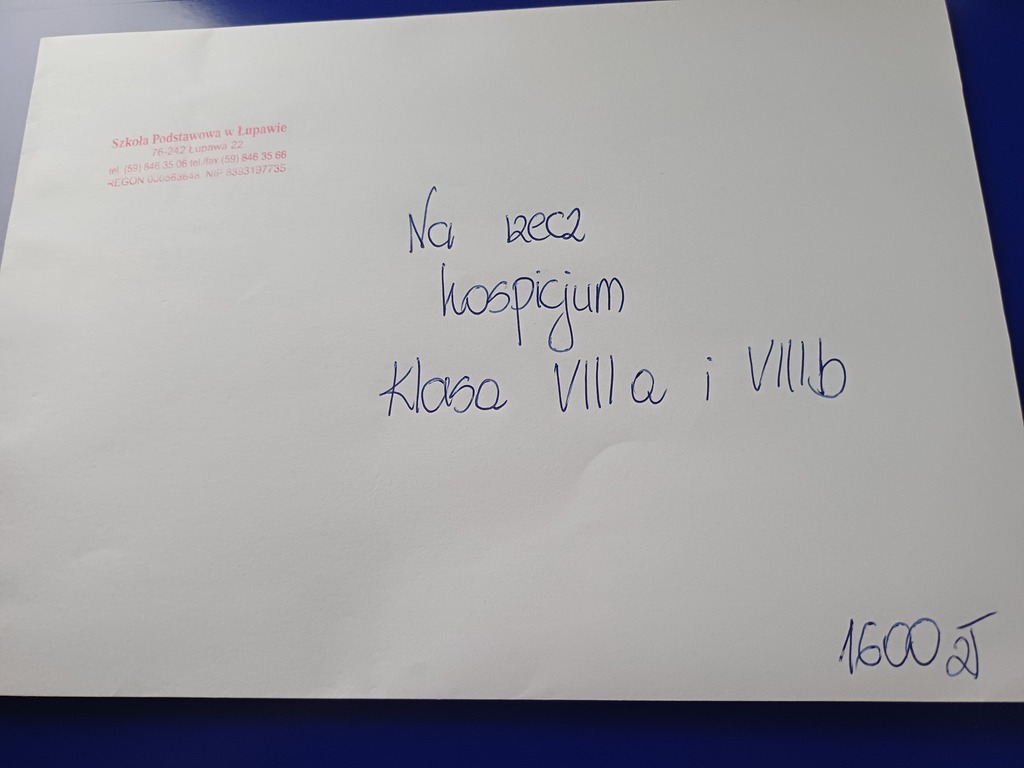 Szkoła Podstawowa w Łupawie
76-242 Łupawa 22
tel. (59) 846 35 06 tel./fax (59) 846 35 66
REGON NIP 8393197735
Na rzecz
hospicjum
Klasa VIII a i VIII b
1600 zł